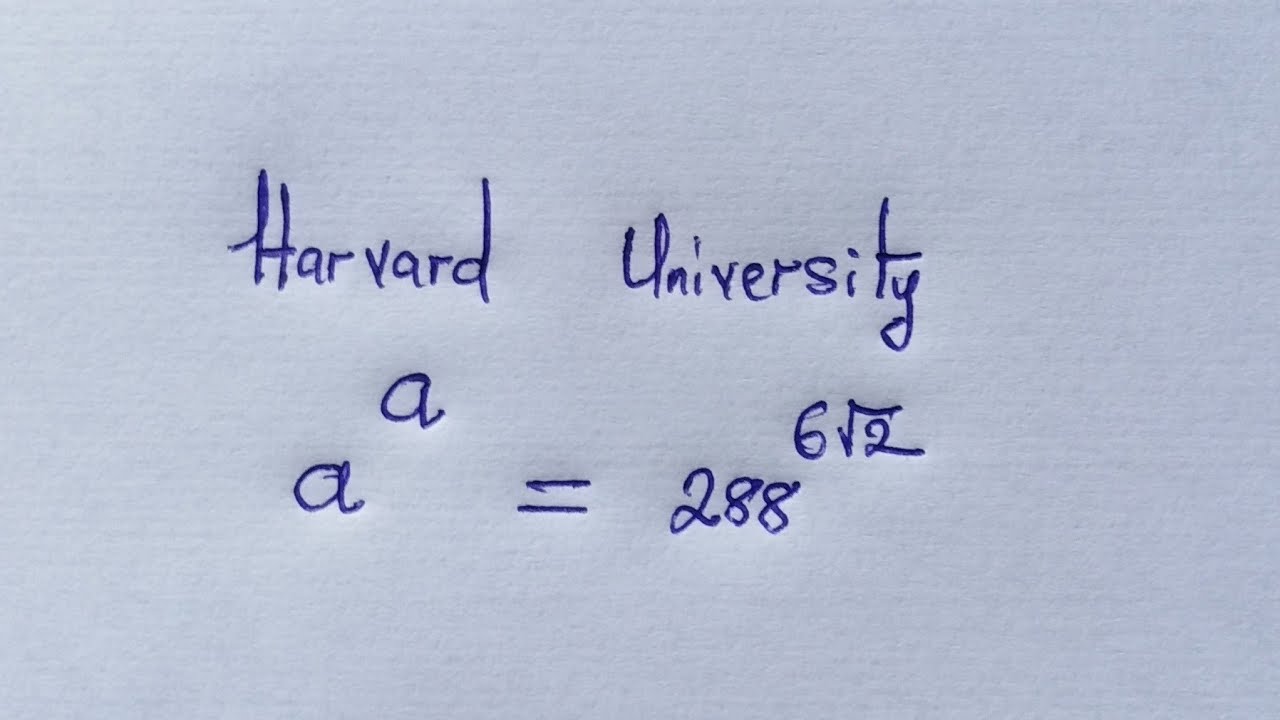 Harvard University
a^a = 288^{6√2}